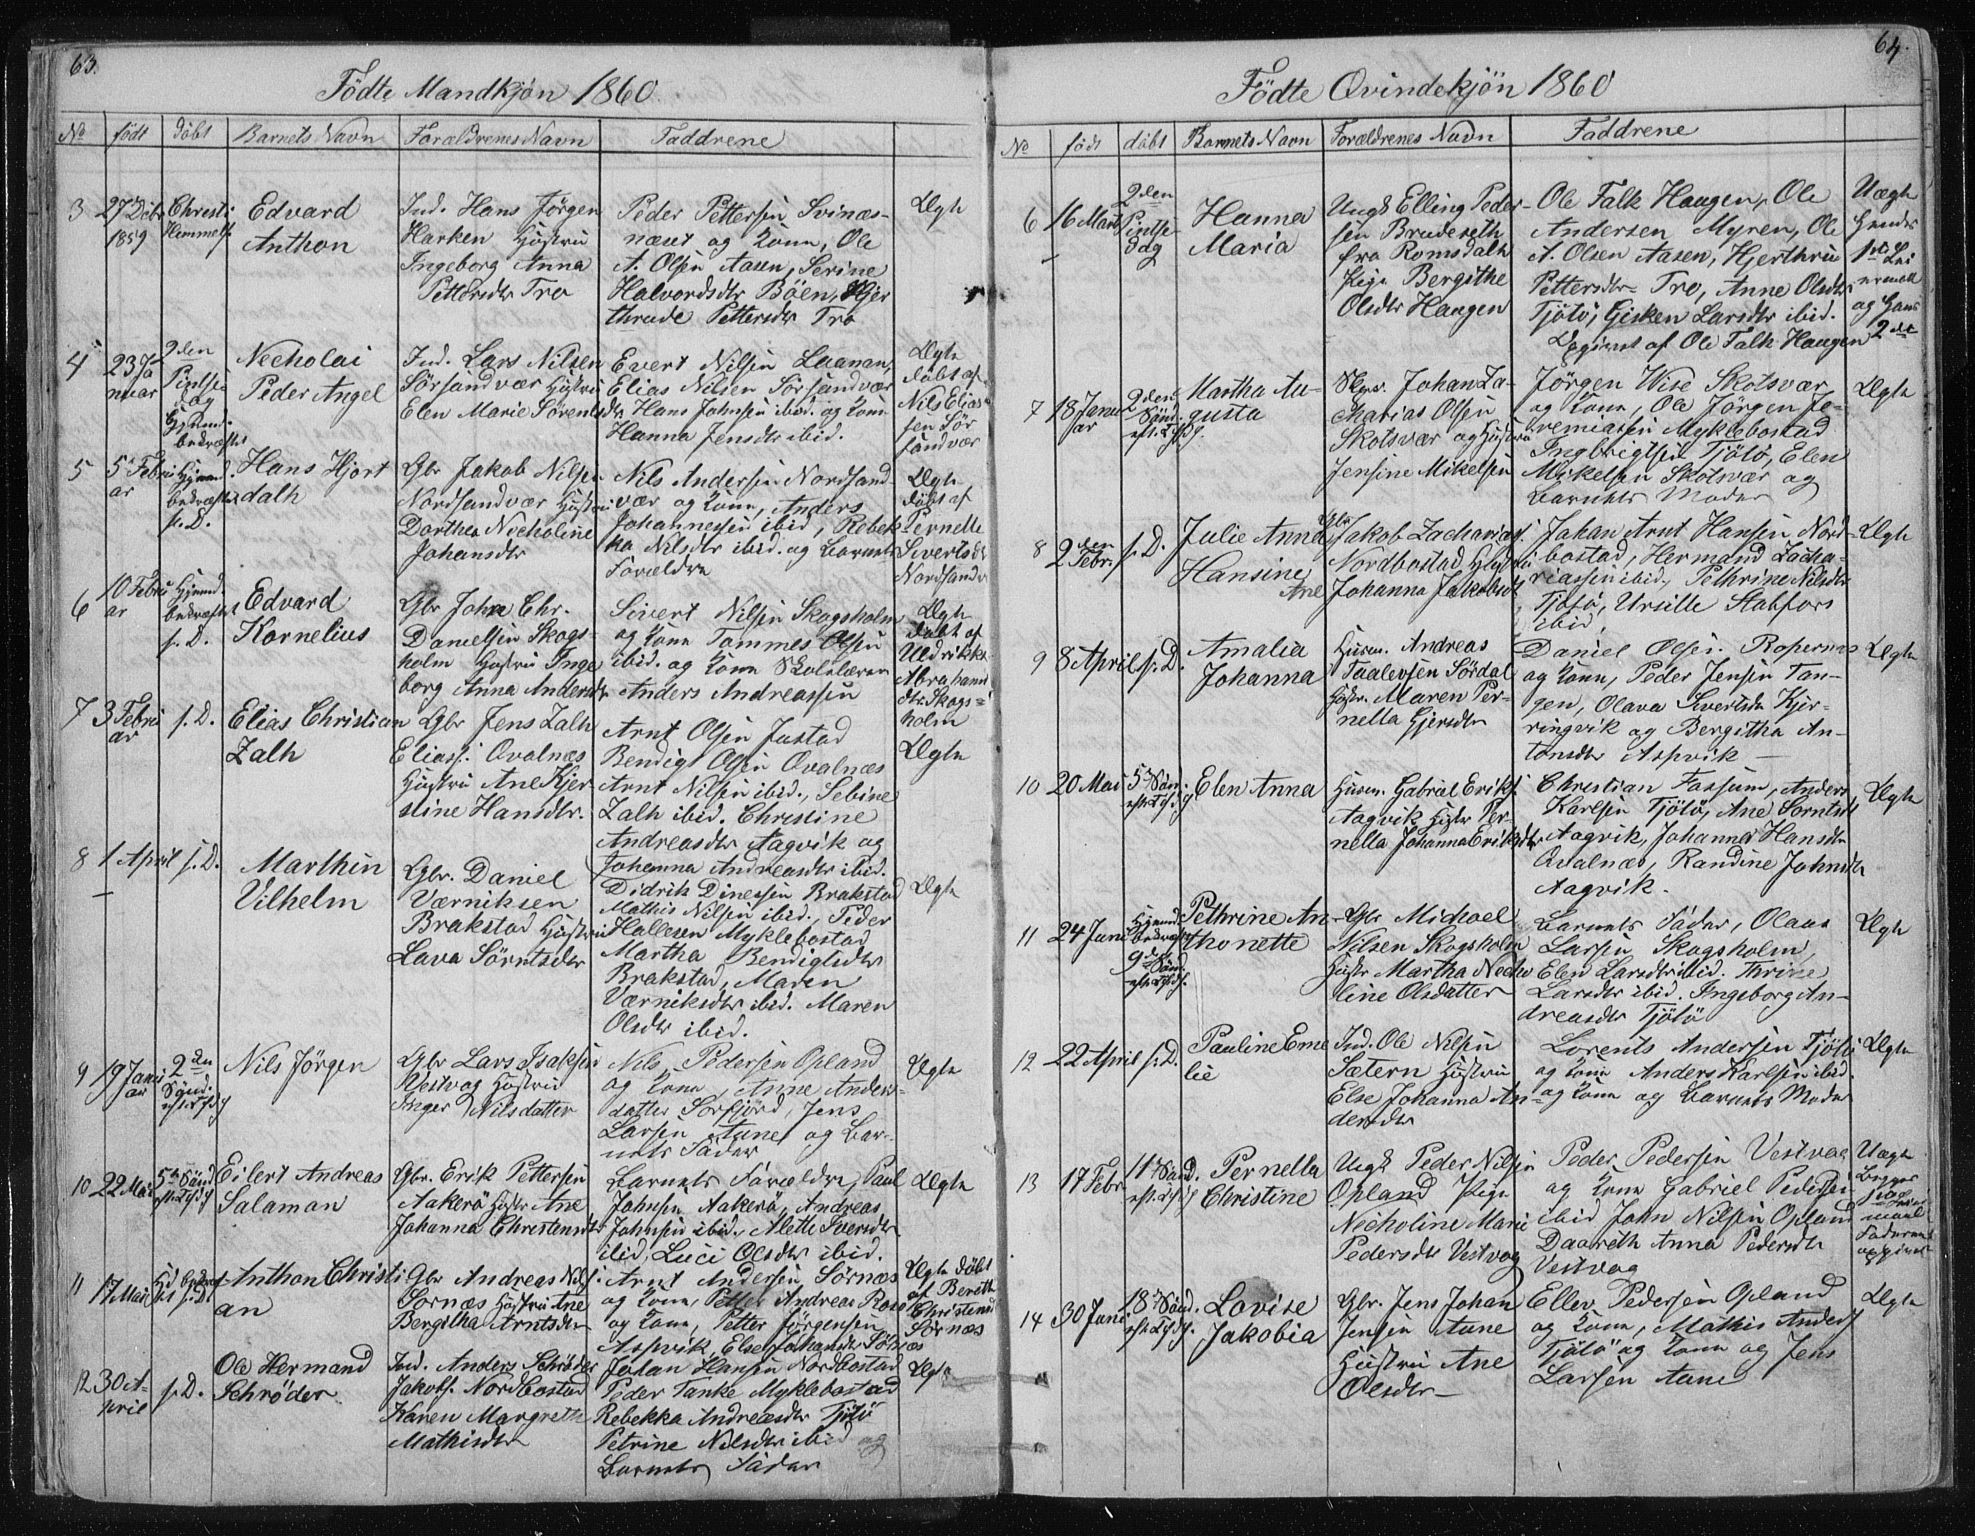 63.
Fødte Mandkjøn 1860.
No født døbt Barnets Navn Forældrenes Navn Faddrene
3 27 Decbr 1859 Christi Himmelf.
Edvard
Anthon
Ind. Hans Jørgen
Harken Hustru
Ingeborg Anna
Pettersdtr Tro
Peder Pettersen Svinæs-
næset og Kone, Ole
A. Olsen Aasen, Serine
Halvordsdtr Böen, Hjer
thrude Pettersdtr Tro
Ægte
4 23 Ja
nuar
2den
Pintse
dag
Hjemd.
bekræftet
Necholai
Peder Angel
Ind. Lars Nilsen
Sörsandvær Hustru
Elen Marie Sörensdtr
Evert Nilsen Laanan,
Elias Nilsen Sörsandvær
Hans Johnsen ibid. og Kone
Hanna Jensdtr ibid.
Ægte
döbt af
Nils Elias
sen Sör
sandvær
5 5 Febru
ar
Hjemd.
bekræftet
s. D.
Hans Hjort
dalh
Gbr Jakob Nilsen
Nordsandvær Hustru
Dorthea Necholine
Johansdtr
Nils Andersen Nordsand
vær og Kone, Anders
Johannessen ibid, Rebek
ka Nilsdtr ibid. og Barnets
Forældre
Ægte
döbt af
Pernelle
Sivertsdtr
Nordsandv
6 10 Febru
ar
Hjemd.
bekræftet
s. D.
Edvard
Kornelius
Gbr John Chr.
Danielsen Skogs-
holm Hustru Inge
borg Anna Andersdtr
Sivert Nilsen Skogsholm
og Kone Tommes Olsen
ibid. og Kone Skolelærer
Anders Andreassen
Ægte
döbt af
Uldrikke
Abrahams
dtr Skogs-
holm
7 3 Febru
ar
s. D.
Elias Christian
Zalh
Gbr Jens Zalh
Eliass. Qvalnæs
Hustru Ane Kjer
stine Hansdtr.
Arnt Olsen Justad
Bendigt Olsen Qvalnæs
Arnt Nilsen ibid., Sebine
Zalh ibid. Christine
Andreasdtr Aagvik og
Johanna Andreasdtr ibid.
Ægte
8 1 April s. D.
Marthin
Vilhelm
Gbr. Daniel
Værniksen
Brakstad Hustru
Lava Sörntsdtr
Didrik Dinessen Brakstad
Mathis Nilsen ibid., Peder
Hallesen Myklebostad
Martha Bendigtsdtr
Brakstad, Maren
Værniksdtr ibid. Maren
Olsdtr ibid.
Ægte
9 19 Janu
ar
2den
Sönd.
eft. Tfdg
Nils Jörgen
Gbr Lars Isaksen
Vestvog Hustru
Inger Nilsdatter
Nils Pedersen Opland
og Kone, Anne Anders-
datter Sorfjord, Jens
Larsen Aune og Bar-
nets Fader
Ægte
10 22 Mai
5te Sönd
eft. Tfdg
Eilert Andreas
Salamon
Gbr. Erik Pettersen
Aakerö Hustr Ane
Johanna Christensdtr
Barnets Forældre, Paul
Johnsen Aakerö, Andreas
Johnsen ibid. Mette Iversdtr
ibid, Luci Olsdtr ibid.
Ægte
11 17 Mai
Hd bekræf
tet s. D.
Anthon Christi
an
Gbr Andreas Nils.
Sornæs Hustru Ane
Bergitha Arntsdtr
Arnt Andersen Sörnæs
og Kone, Petter Andreas Rosö
og Kone, Petter Jörgensen
Aspvik, Else Johansdtr Sörnæs
Ægte döbt
af Bereth
Christensd
Sörnæs
12 30 A-
pril
s. D.
Ole Hermand
Schrøder
Ind. Anders Schrøder
Jakobs. Nordbostad
Karen Margreth
Mathisdtr
Johan Hansen Nordbostad
Peder Tanke Myklebostad
Rebekka Andreasdtr Tjötö
Petrine Nilsdtr ibid og
Barnets Fader
Ægte
64.
Fødte Qvindekjön 1860
No født døbt Barnets Navn Forældrenes Navn Faddrene
6 16 Marts
2den
Pintse
dag
Hanna
Maria
Ungk Elling Peder-
sen Bruseseth
fra Romsdalh
Pige Bergithe
Olsdtr Haugen
Ole Falk Haugen, Ole
Andersen Myren, Ole
A. Olsen Aasen, Hjerthru
Pettersdtr Tro, Anne Olsdtr
Tjötö, Gisken Larsdtr ibid.
Opgivet af Ole Falk Haugen
Uægte
Hendes
1ste Lei
ermaal
og Hans
2det
7 18 Janu
ar
2den
Sönd.
eft. Tfdg.
Martha Au-
gusta
Skpr. Johan Za-
charias Olsen
Skotsvær og Hustru
Jensine Mikelsen
Jörgen Wise Skotsvær
og Kone, Ole Jörgen Je-
remiasen Myklebostad
Ingbrigtsen Tjötö, Elen
Mikelsen Skotsvær og
Barnets Moder
Ægte
8 2den
Febr.
s. D.
Julie Anna
Hansine
Ane
Gbr Jakob Zacharias.
Nordbostad Hustru
Johanna Jakobsdtr
Johan Arnt Hansen Nord-
bostad, Hermand Zacha-
riassen ibid, Pethrine Nilsdtr
Tjötö, Ursille Stabfors
ibid,
Ægte
9 8 April s. D.
Amalia
Johanna
Husm. Andreas
Taalevsen Sördal
Hustr. Maren Per-
nella Gjersdtr
Daniel Olsen Rosernes
og Kone, Peder Jensen Tan-
gen, Olava Sivertsdtr Kjer-
ringvik og Bergitha An-
tonsdtr Aspvik
Ægte
10 20 Mai
5te Sön.
eft. Tfdg
Elen Anna
Husm. Gabriel Eriks.
Aagvik Hustr Per-
nella Johanna Eriksdtr
Christian Fossum, Anders
Karlsen Tjötö, Ane Sorntsdtr
Aagvik, Johanna Hansdtr
Qvalnæs, Randine Johnsdtr
Aagvik.
Ægte
11 24 Juni
Hjemd
bekræft
9de
Sönd.
eft. Tfdg.
Pethrine An-
thonette
Gbr Michael
Nilsen Skogsholm
Hustr Martha Necho
line Olsdatter
Barnets Fader, Olaus
Larsen Skogsholm,
Elen Larsdtr ibid. Thrine
Larsdtr ibid. Ingeborg An-
dreasdtr Tjötö
Ægte
12 22 April s. D.
Pauline Eme
lie
Ind. Ole Nilsen
Sætern Hustru
Else Johanna An-
dersdtr
Lorents Andersen Tjötö
og Kone Anders Karlsen ibid.
og Kone og Barnets Moder
Ægte
13 17 Febr
11te Sönd.
eft. Tfdg
Pernella
Christine
Ungk Peder Nilsen
Opland Pige
Necholine Marie
Pedersdtr Vestvog
Peder Pedersen Vestvog
og Kone Gabriel Pedersen
ibid John Nilsen Opland
Daareth Anna Pedersdtr
Vestvog
Uægte
Begges
1ste Leier
maal
Faderen
opgivet
14 30 Juni
18de Sönd.
eft. Tfdg.
Lovise
Jakobia
Gbr. Jens Johan
Jensen Aune
Hustru Ane
Olsdtr
Ellev Pedersen Opland
og Kone, Mathis Anders.
Tjötö og Kone og Jens
Larsen Aune
Ægte